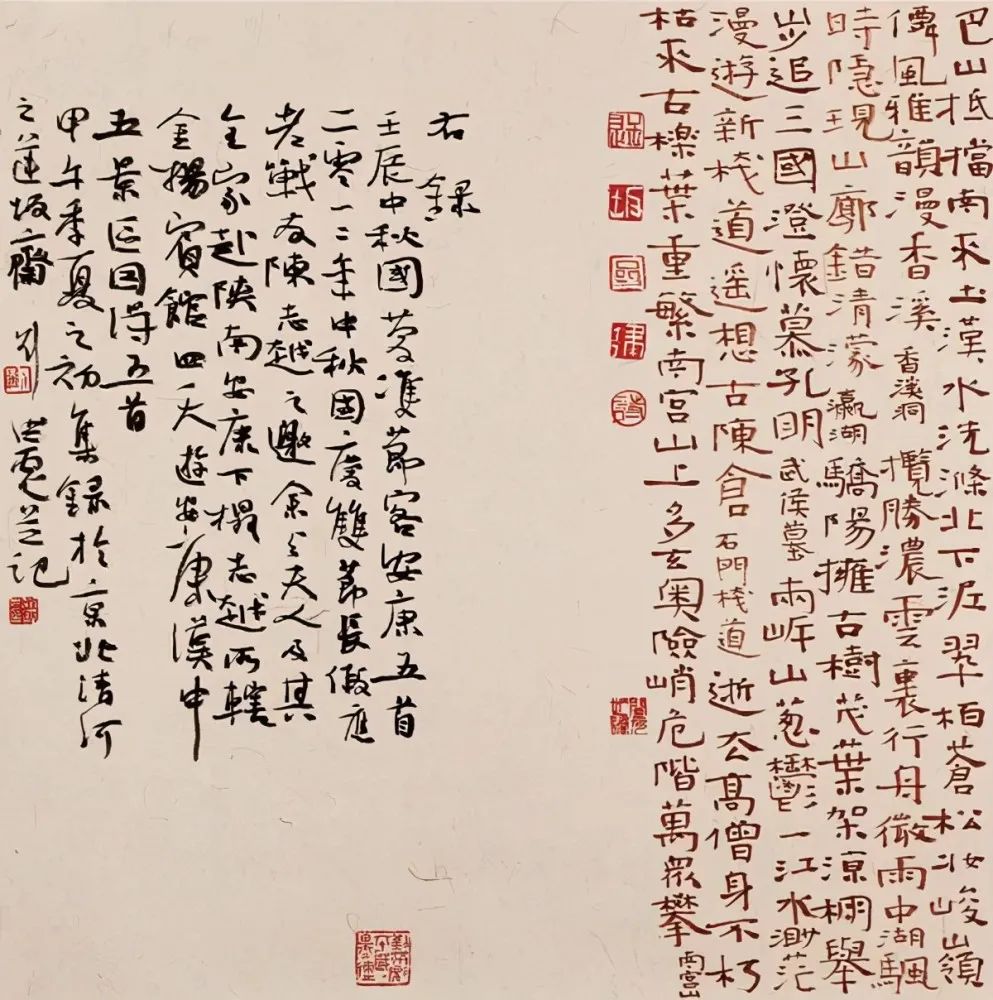 巴山抵擋南來土漢水洗滌北下泥翠柏蒼松妝峻嶺
僲風雅韻漫香溪 香溪洞 攬勝濃雲裏行舟微雨中湖颿
時隱現山廓錯清濛 瀛湖 驕陽擁古樹茂葉架涼棚舉
步追三國澄懷慕孔明 武侯墓 兩岸山蔥鬱一江水渺茫
漫遊新棧道遥想古陳倉 石門棧道 逝去高僧身不朽
枯來古櫟葉重繁南宮山上多玄奧險峭危階萬眾攀 南宮山
右錄
壬辰中秋國慶雙節客安康五首
二零一二年中秋國慶雙節長假應
老戰友陳志越之邀余與夫人及其
全家赴陝南安康下榻志越所轄
金揚賓館四天遊安康漢中
五景區因得五首
甲午季夏之初集錄於京北清河
之蓮坂齋 劉洪彪並記